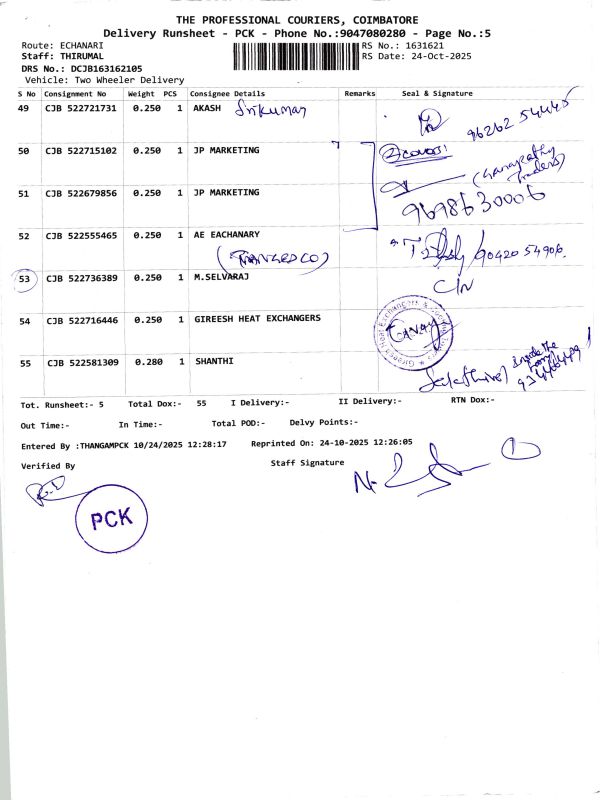 THE PROFESSIONAL COURIERS, COIMBATORE
Delivery Runsheet - PCK - Phone No.:9047080280 - Page No.:5
Route: ECHANARI RS No.: 1631621
Staff: THIRUMAL RS Date: 24-Oct-2025
DRS No.: DCJB163162105
Vehicle: Two Wheeler Delivery
S No Consignment No Weight PCS Consignee Details Remarks Seal & Signature
49 CJB 522721731 0.250 1 AKASH Srikumar 96262 54445
50 CJB 522715102 0.250 1 JP MARKETING ② covers
(Ganapathy Traders)
51 CJB 522679856 0.250 1 JP MARKETING 9698630006
52 CJB 522555465 0.250 1 AE EACHANARY 90420 54906
(TANGEDCO)
53 CJB 522736389 0.250 1 M.SELVARAJ C/N
54 CJB 522716446 0.250 1 GIREESH HEAT EXCHANGERS
55 CJB 522581309 0.280 1 SHANTHI inside the
Tot. Runsheet:- 5 Total Dox:- 55 I Delivery:- II Delivery:- RTN Dox:-
Out Time:- In Time:- Total POD:- Delvy Points:-
Entered By :THANGAMPCK 10/24/2025 12:28:17 Reprinted On: 24-10-2025 12:26:05
Verified By Staff Signature
PCK